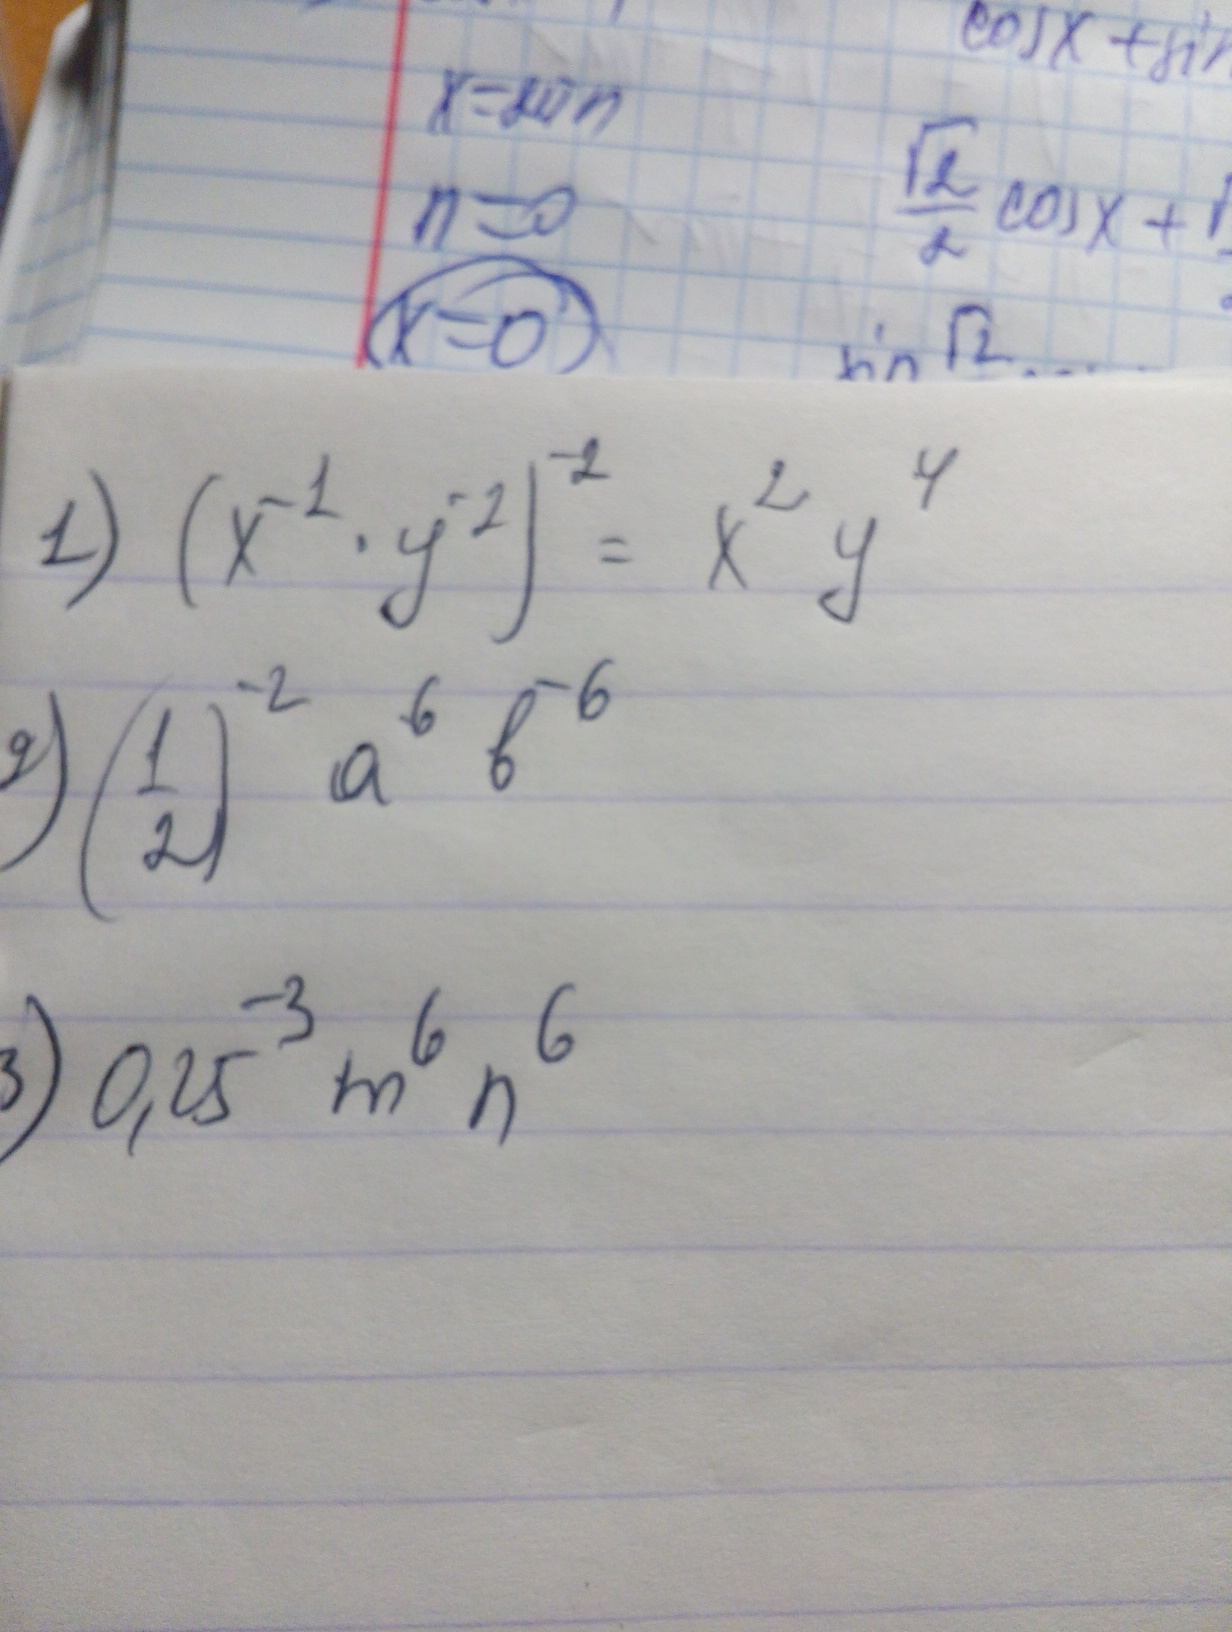 cosx + sin
x=2πn
n=0
√2/2 cosx + √
x=0
sin √2
1) (x⁻¹ · y⁻²)⁻² = x² y⁴
2) (1/2)⁻² a⁶ b⁻⁶
3) 0,25⁻³ m⁶ n⁶